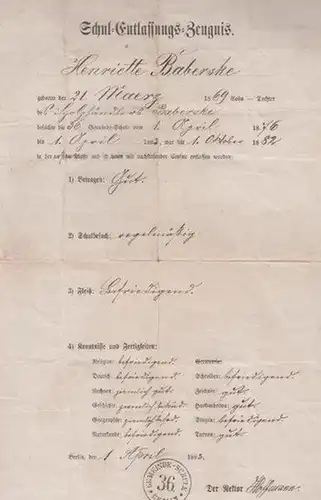 Schul-Entlassungs-Zeugnis.
Henriette Baberske
geboren den 21 Maerz 1869 Sohn – Tochter
des Holzhändlers Baberske
besuchte die 36 Gemeinde-Schule vom 1 April 1876
bis 1 April 1883, war bis 1 Oktober 1882
in der Klasse und ist mit nachstehender Censur entlassen worden:
1) Betragen: Gut.
2) Schulbesuch: regelmäßig
3) Fleiß: Befriedigend.
4) Kenntnisse und Fertigkeiten:
Religion: befriedigend
Deutsch: befriedigend. Schreiben: befriedigend.
Rechnen: ziemlich gut. Zeichnen: gut.
Geschichte: ziemlich befried. Handarbeiten: gut.
Geographie: ziemlich befried. Singen: befriedigend
Naturkunde: befriedigend. Turnen: gut.
Berlin, den 1 April 1883.
GEMEINDE-SCHULE
36
BERLIN
Der Rektor Hoffmann